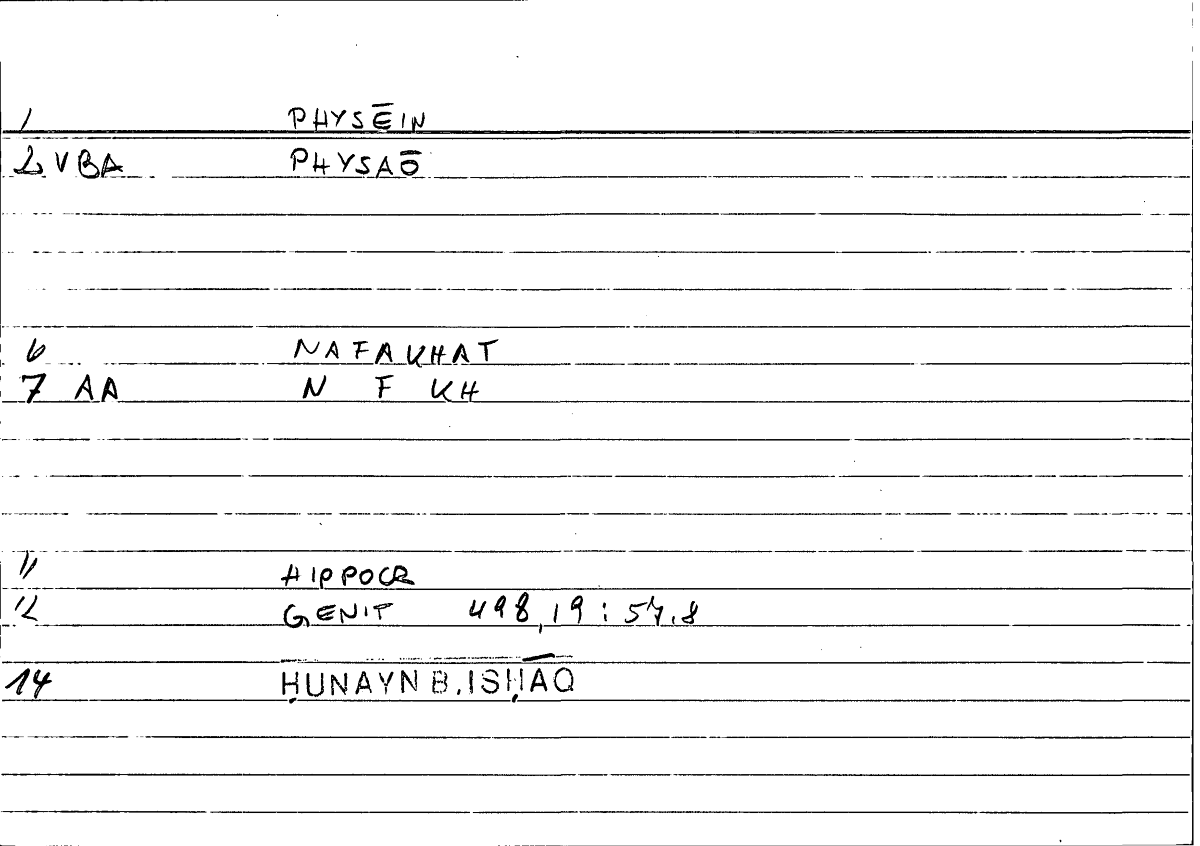 1 PHYSĒIN
2 VBA PHYSAŌ
6 NAFAKHAT
7 AA N F KH
11 HIPPOCR
12 GENIT 498,19 : 57.8
14 ḤUNAYN B. ISḤĀQ